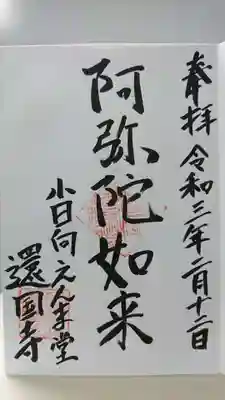 奉拝 令和三年二月十二日
阿弥陀如来
小日向えんま堂
還国寺